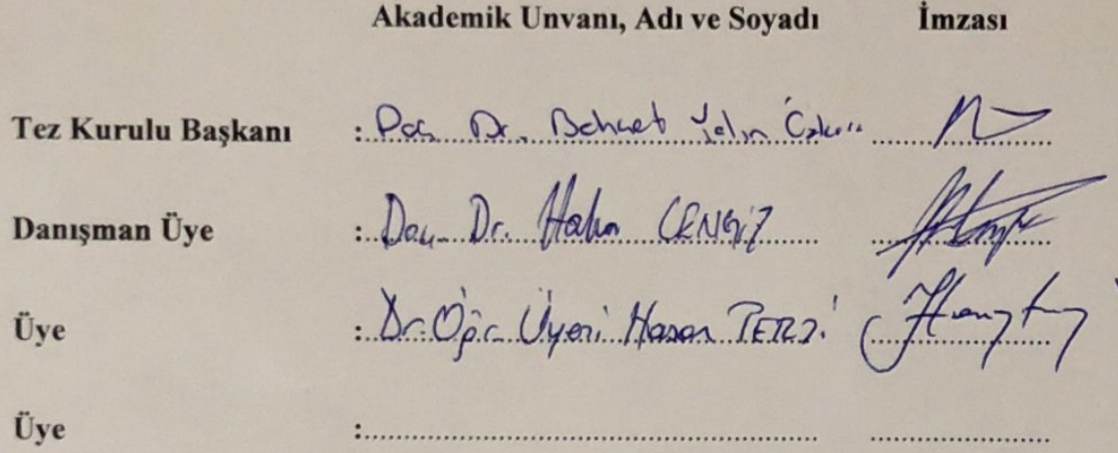 Akademik Unvanı, Adı ve Soyadı İmzası
Tez Kurulu Başkanı : Doç. Dr. Behcet Yalın
Danışman Üye : Doç. Dr. Hakan CENGİZ
Üye : Dr. Öğr. Üyesi Hasan TERZİ
Üye :